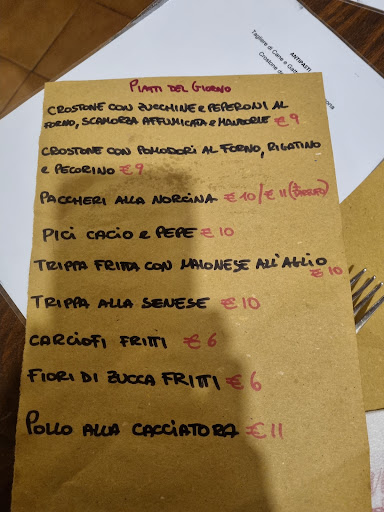 ANTIPASTI
Tagliere di Carne e
Crostone
PIATTI DEL GIORNO
CROSTONE CON ZUCCHINE e PEPERONI AL
FORNO, SCAMORZA AFFUMICATA e MANDORLE €9
CROSTONE CON POMODORI AL FORNO, RIGATINO
e PECORINO €9
PACCHERI ALLA NORCINA €10/€11
PICI CACIO e PEPE €10
TRIPPA FRITTA CON MAIONESE ALL'AGLIO
€10
TRIPPA ALLA SENESE €10
CARCIOFI FRITTI €6
FIORI DI ZUCCA FRITTI €6
POLLO ALLA CACCIATORA €11